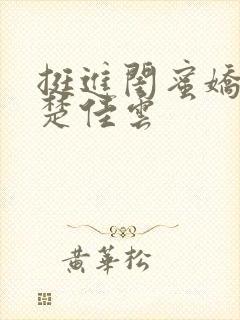 挺進閨蜜嬌
楚佳雲
黃華松